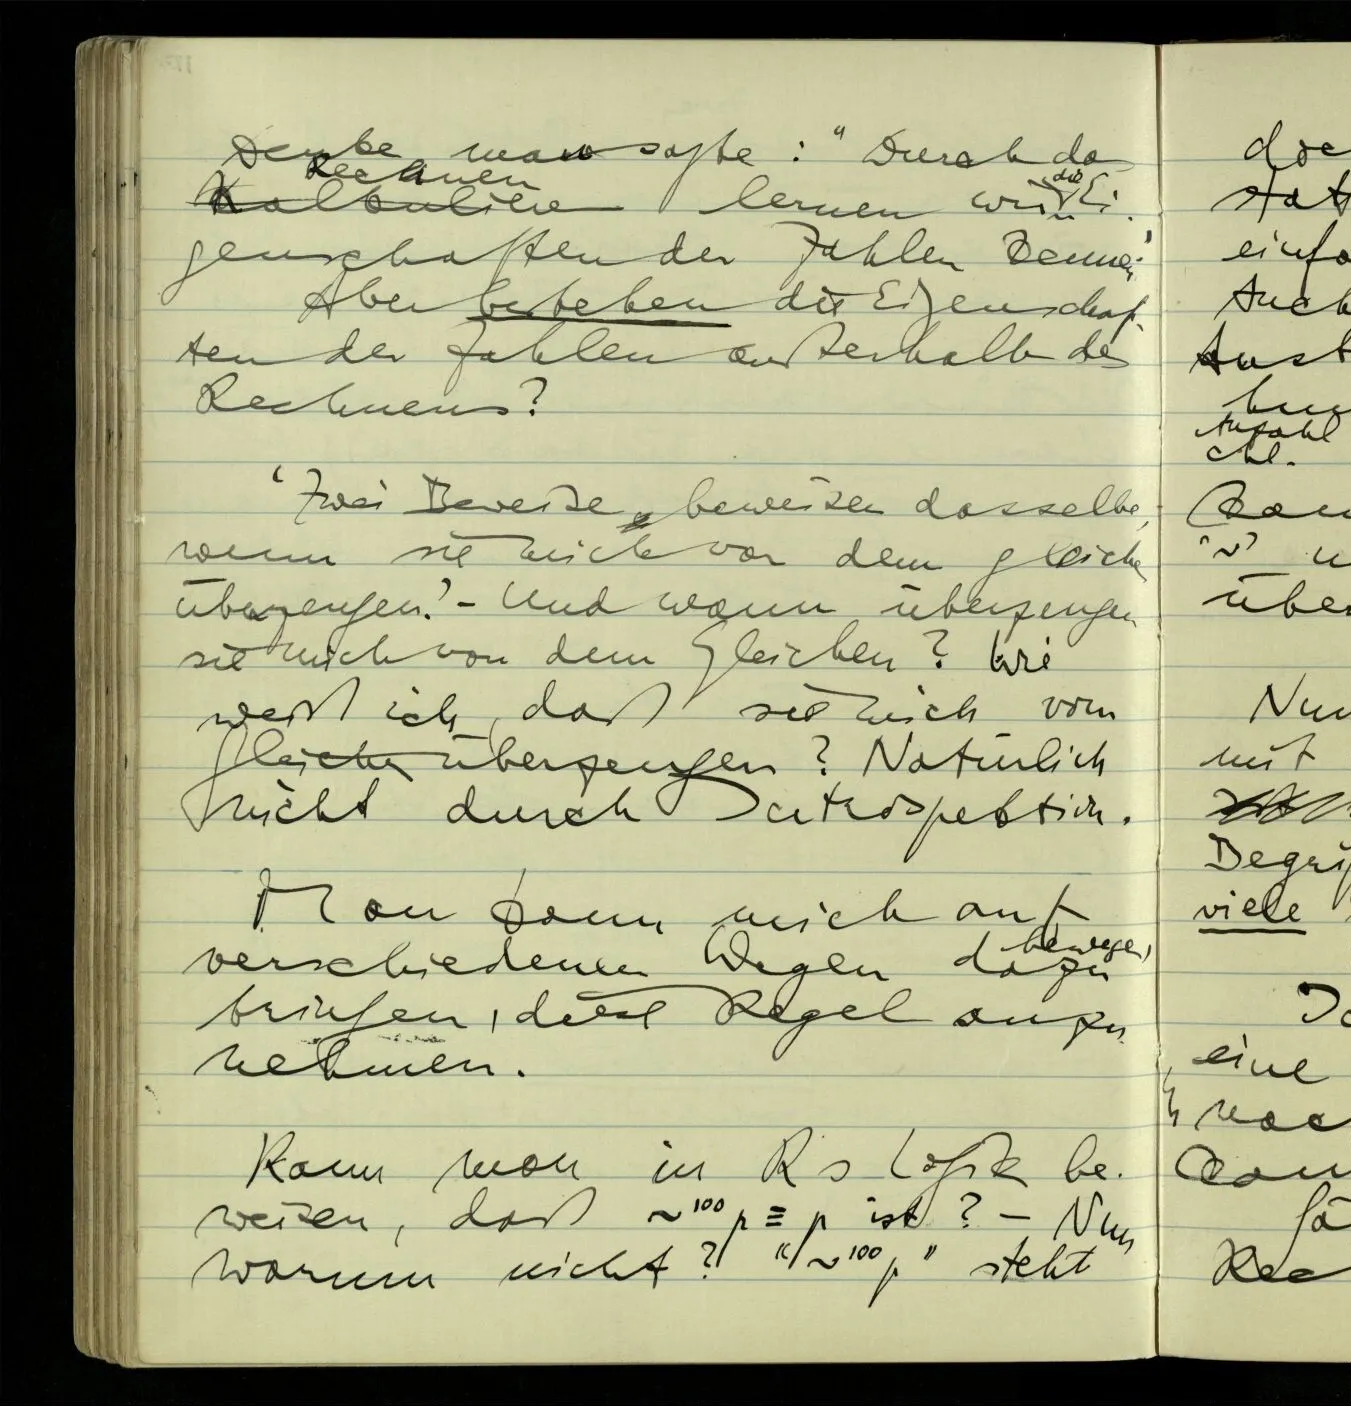 Denke man sagte: "Durch das
Rechnen
Kalkulieren lernen wir die Ei-
genschaften der Zahlen kennen"
Aber bestehen die Eigenschaf-
ten der Zahlen außerhalb des
Rechnens?
'Zwei Beweise beweisen dasselbe,
wenn sie mich von dem gleichen
überzeugen.' – Und wann überzeugen
sie mich von dem Gleichen? Wie
weiß ich, daß sie mich vom
Gleichen überzeugen? Natürlich
nicht durch Introspektion.
Man kann mich auf
bewegen,
verschiedenen Wegen dazu
bringen, diese Regel anzu-
nehmen.
Kann man in R s Logik be-
weisen, daß ~¹⁰⁰p ≡ p ist? – Nun
warum nicht? "~¹⁰⁰p" steht
einfa
Auch
Anzahl
'~'
über
Nun
mit
Begrif
viele
eine
noc
Rec